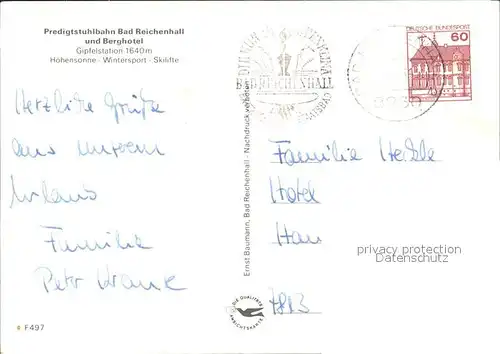 Predigtstuhlbahn Bad Reichenhall
und Berghotel
Gipfelstation 1640 m
Höhensonne · Wintersport · Skilifte
Herzliche Grüße
aus unserem
Urlaub
Familie
Petr
F497
Ernst Baumann, Bad Reichenhall - Nachdruck verboten
BAD REICHENHALL
DEUTSCHE BUNDESPOST
60
Familie
Hotel
7813
privacy protection
Datenschutz
DIE QUALITÄTS
ANSICHTSKARTE